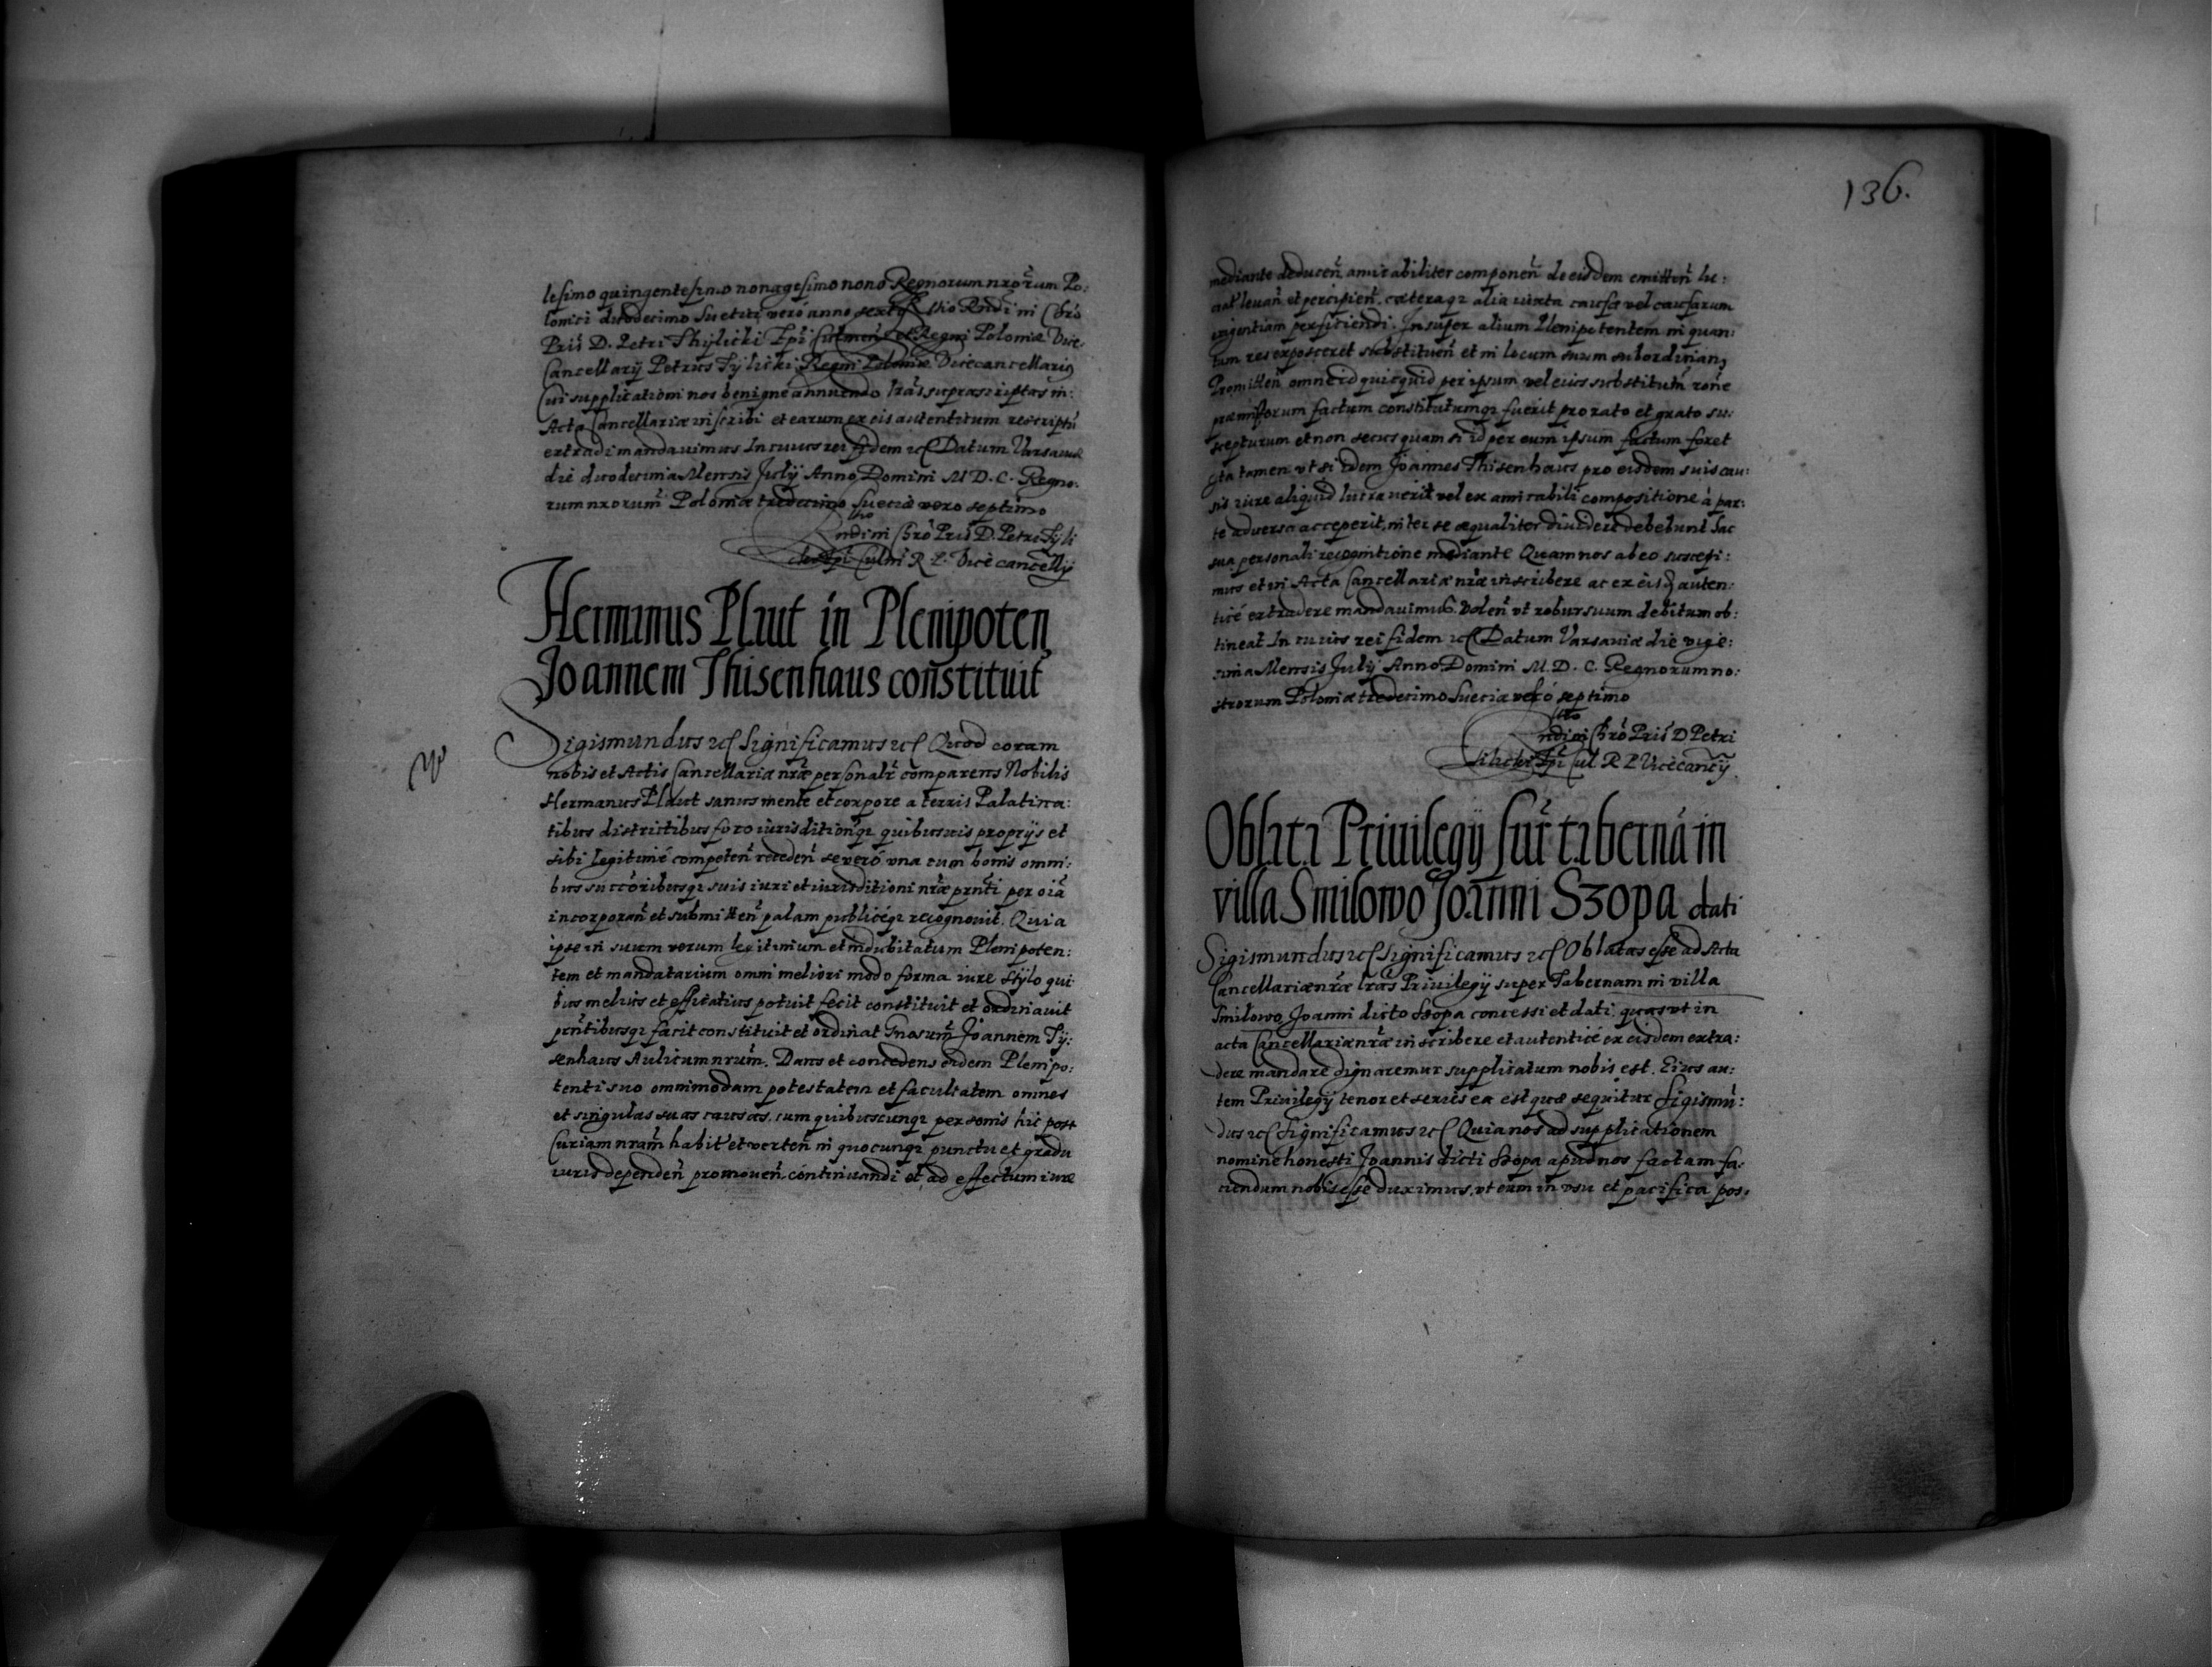 lesimo quingentesimo nonagesimo nono Regnorum nror̃um Po:
loniei duodecimo Sueciæ vero anno sexto Rltio Rndi in Chrõ
Pris D. Petri Thÿlicki Epi Culmen̄ et Regni Poloniæ Vice:
Cancellarÿ Petrus Tÿlicki Regni Poloniæ Vicecancellariꝯ
Cui supplicationi nos benigne annuendo Lrãs suprascriptas in
Acta Cancellariæ inscribi et earum ex eis autenticum rescriptū
extradi mandauimus In cuius rei fidem etc̃ Datum Varsauiæ
die duodecima Mensis Julÿ Anno Domini M D. C. Regno:
rum nrorum̃ Poloniæ tredecimo Sueciæ vero septimo
Rltio
Rndi in Chrõ Pris̃ D. Petri Tÿli
cki Epi Culmi R. P. Vicecancellÿ
Hermanus Plaut in Plenipoten
Joannem Thisenhaus constituit
Sigismundus etc̃ Significamus etc̃ Quod coram
nobis et Actis Cancellariæ nrǣ personalr̃ comparens Nobilis
Hermanus Plaut sanus mente et corpore a terris Palatina:
tibus districtibus foro iurisditionq̃ꝫ quibusuis proprÿs et
sibi legitime competen̄ receden̄ se vero vna cum bonis omni:
bus succõribusqꝫ suis iuri et iurisditioni nrǣ prñti per oiã
incorporan̄ et submitten̄ palam publiceqꝫ recognouit. Quia
ipse in suum verum legitimum et indubitatum Plenipoten:
tem et mandatarium omni meliori modo forma iure stÿlo qui
bus melius et efficatius potuit fecit constituit et ordinauit
pñtibusqꝫ facit constituit et ordinat Gnosum̃ Joannem Tÿ:
senhaus Aulicum nrum̃. Dans et concedens eidem Plenipo:
tenti suo omnimodam potestatem et facultatem omnes
et singulas suas causas, cum quibuscunqꝫ personis hic post
Curiam nram̃ habit̃ et verten̄ in quocunqꝫ punctu et gradu
iuris dependen̄ promouen̄. continuandi et ad effectum iure
136.
mediante deducen̄, amicabiliter componen̄ de eisdem emitten̄ lu:
crat̃ leuan̄ et percipien̄. cæteraqꝫ alia iuxta causæ vel causarum
exigentiam perficiendi. In super alium Plenipotentem in quan:
tum res exposceret substituen̄ et in locum suum subordinan̄
Promitten̄ omne id quicquid per ipsum vel eius substitum̃ rone
præmissorum factum constitutumqꝫ fuerit pro rato et grato su:
scepturum et non secus quam si id per eum ipsum factum foret
Ita tamen vt si idem Joannes Thisenhaus pro eisdem suis cau:
sis iure aliquid lucrauerit vel ex amicabili compositione à par:
te aduersa acceperit, inter se æqualiter diuidere debebunt hac
sua personali recognitione mediante Quam nos ab eo suscepi:
mus et in Acta Cancellariæ nrǣ inscribere ac ex eisd̃ auten:
tice extradere mandauimus. Volen̄ vt robur suum debitum ob:
tineat In cuius rei fidem etc̃ Datum Varsauiæ die vige:
sima Mensis Julÿ Anno Domini M. D. C. Regnorum no:
strorum Poloniæ tredecimo Sueciæ vero septimo
Rltio
Rndi in Chrõ Pris̃ D Petri
Tilicki Epi Cul. R P Vicecancÿ
Oblata Priuilegÿ sup̃r tabernã in
villa Smilowo Joanni Szopa dati
Sigismundus etc̃ Significamus etc̃ Oblatas esse ad Acta
Cancellariæ nrǣ Lrãs Priuilegÿ super Tabernam in villa
Smilowo Joanni dicto Szopa concessi et dati, quas vt in
acta Cancellariæ nrǣ inscribere et autentice ex eisdem extra:
dere mandare dignaremur supplicatum nobis est. Eius au:
tem Priuilegÿ tenor et series ea est quæ sequitur Sigismū:
dus etc̃ Significamus etc̃ Quia nos ad supplicationem
nomine honesti Joannis dicti Szopa apud nos factam fa:
ciendum nobis esse duximus, vt eum in vsu et pacifica pos: